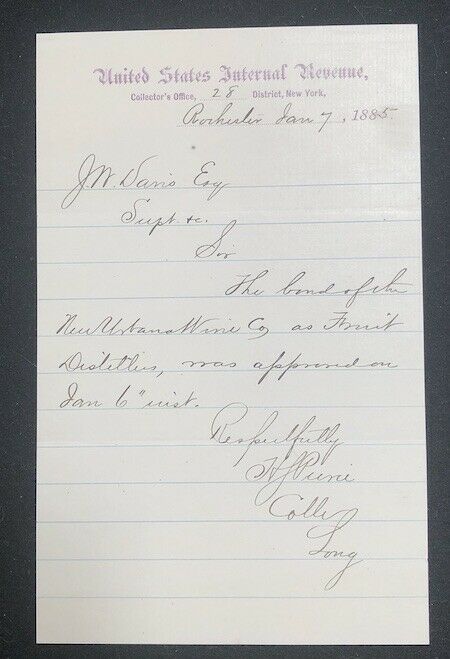 United States Internal Revenue,
Collector's Office, 28 District, New York,
Rochester Jan 7, 1885
J.W. Davis Esq
Supt. &c.
Sir
The bond of the
New Urbana Wine Co, as Fruit
Distillers, was approved on
Jan 6" inst.
Respectfully
Colle